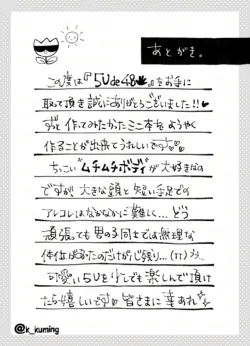 あとがき。
この度は『5Ude48』をお手に
取って頂き誠にありがとうございました!!
ずっと作ってみたかったミニ本をようやく
作ることが出来てうれしいです
ちっこい"ムチムチボディ"が大好きなの
ですが大きな頭と短い手足での
アレコレはなかなかに難しく…どう
頑張ても男の子同士では無理な
体位があったのだけが心残り…(TT)
可愛い5Uを少しでも楽しんで頂け
たら嬉しいです 皆さまに幸あれ
@k_kuming